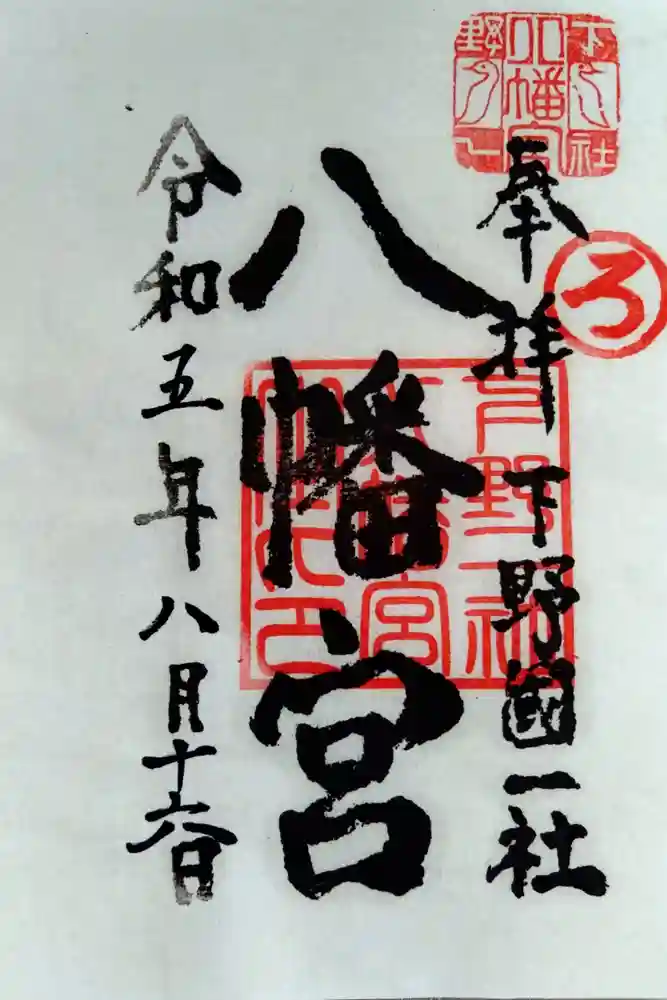 下 社
八幡宮
野 一
ろ
奉拝 下野國一社
八幡宮
令和五年八月十六日
下野一社
八幡宮